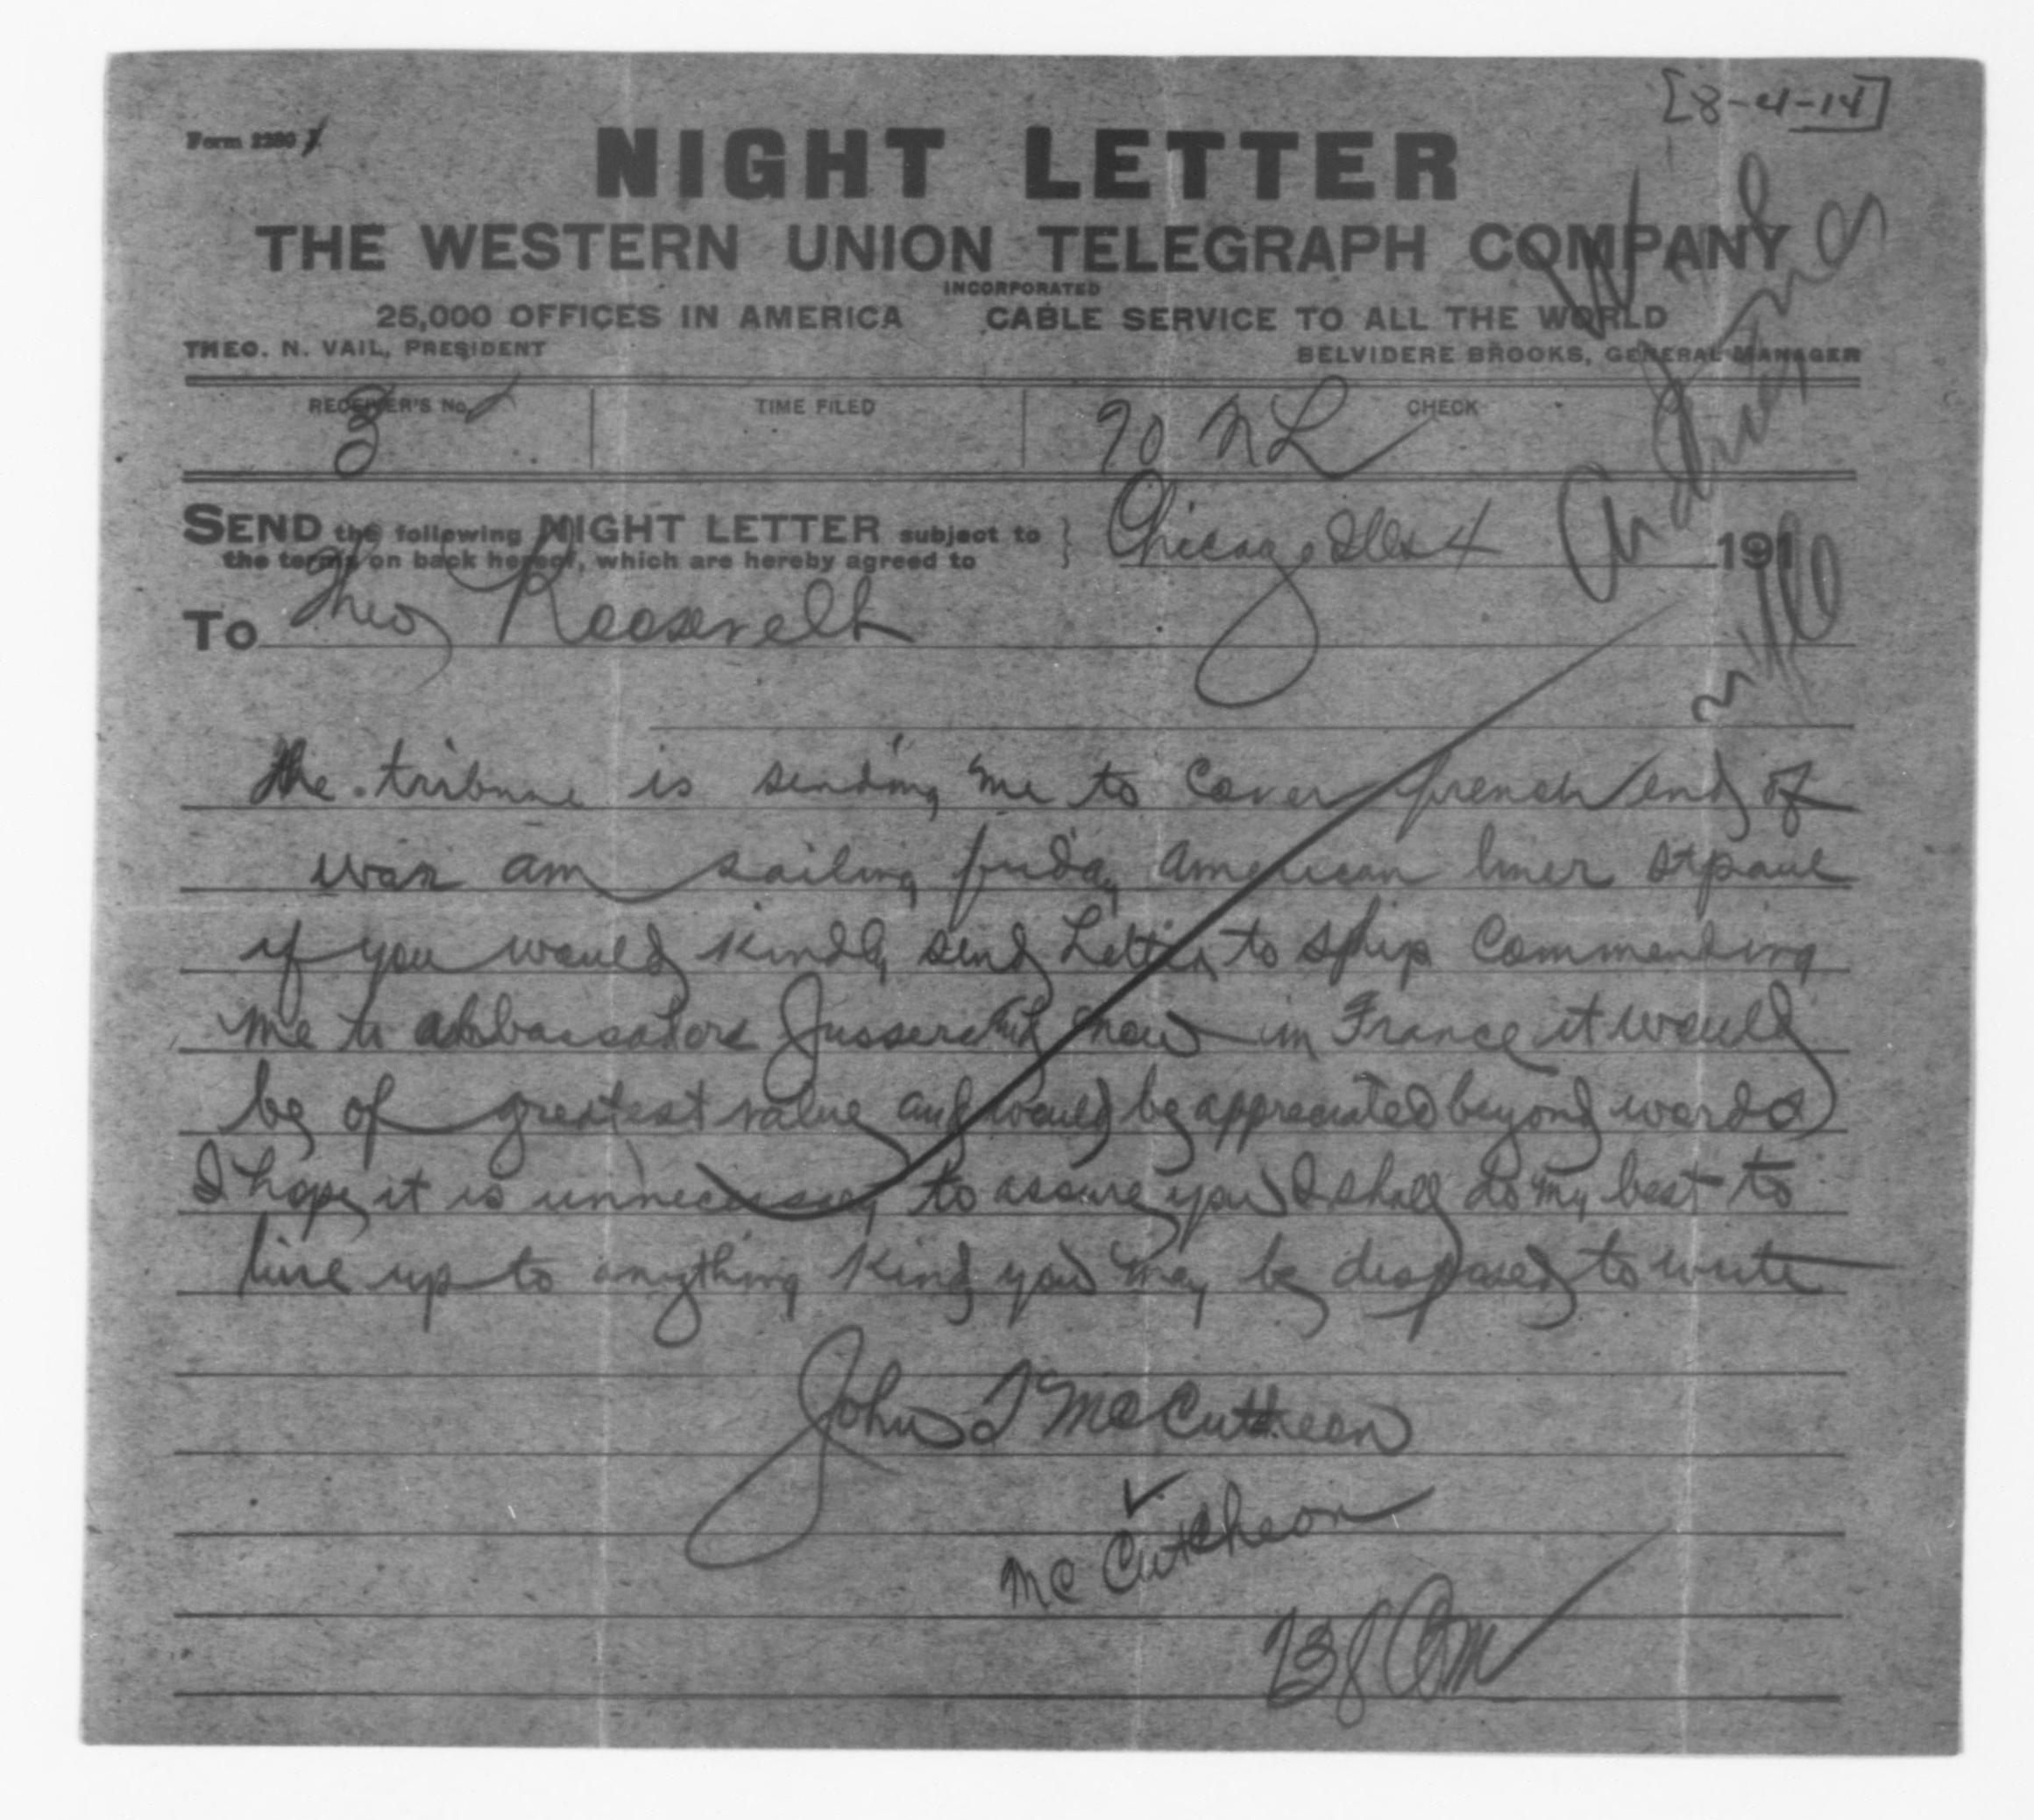 [8-4-14]
Form 2280
NIGHT LETTER
THE WESTERN UNION TELEGRAPH COMPANY
INCORPORATED
25,000 OFFICES IN AMERICA CABLE SERVICE TO ALL THE WORLD
THEO. N. VAIL, PRESIDENT BELVIDERE BROOKS, GENERAL MANAGER
RECEIVER'S No. TIME FILED CHECK
3 90 NL
SEND the following NIGHT LETTER subject to
the terms on back hereof, which are hereby agreed to
Chicago Ills 4 191
To Theo Roosevelt
the tribune is sending me to cover french end of
war am sailing friday American liner St paul
if you would kindly send Letter to ship Commending
me to abbassadors Jusserand now in France it would
be of greatest value and would be appreciated beyond words
I hope it is unnecessary to assure you I shall do my best to
live up to anything kind you may be disposed to write
John T McCutheon
McCutcheon
238 am